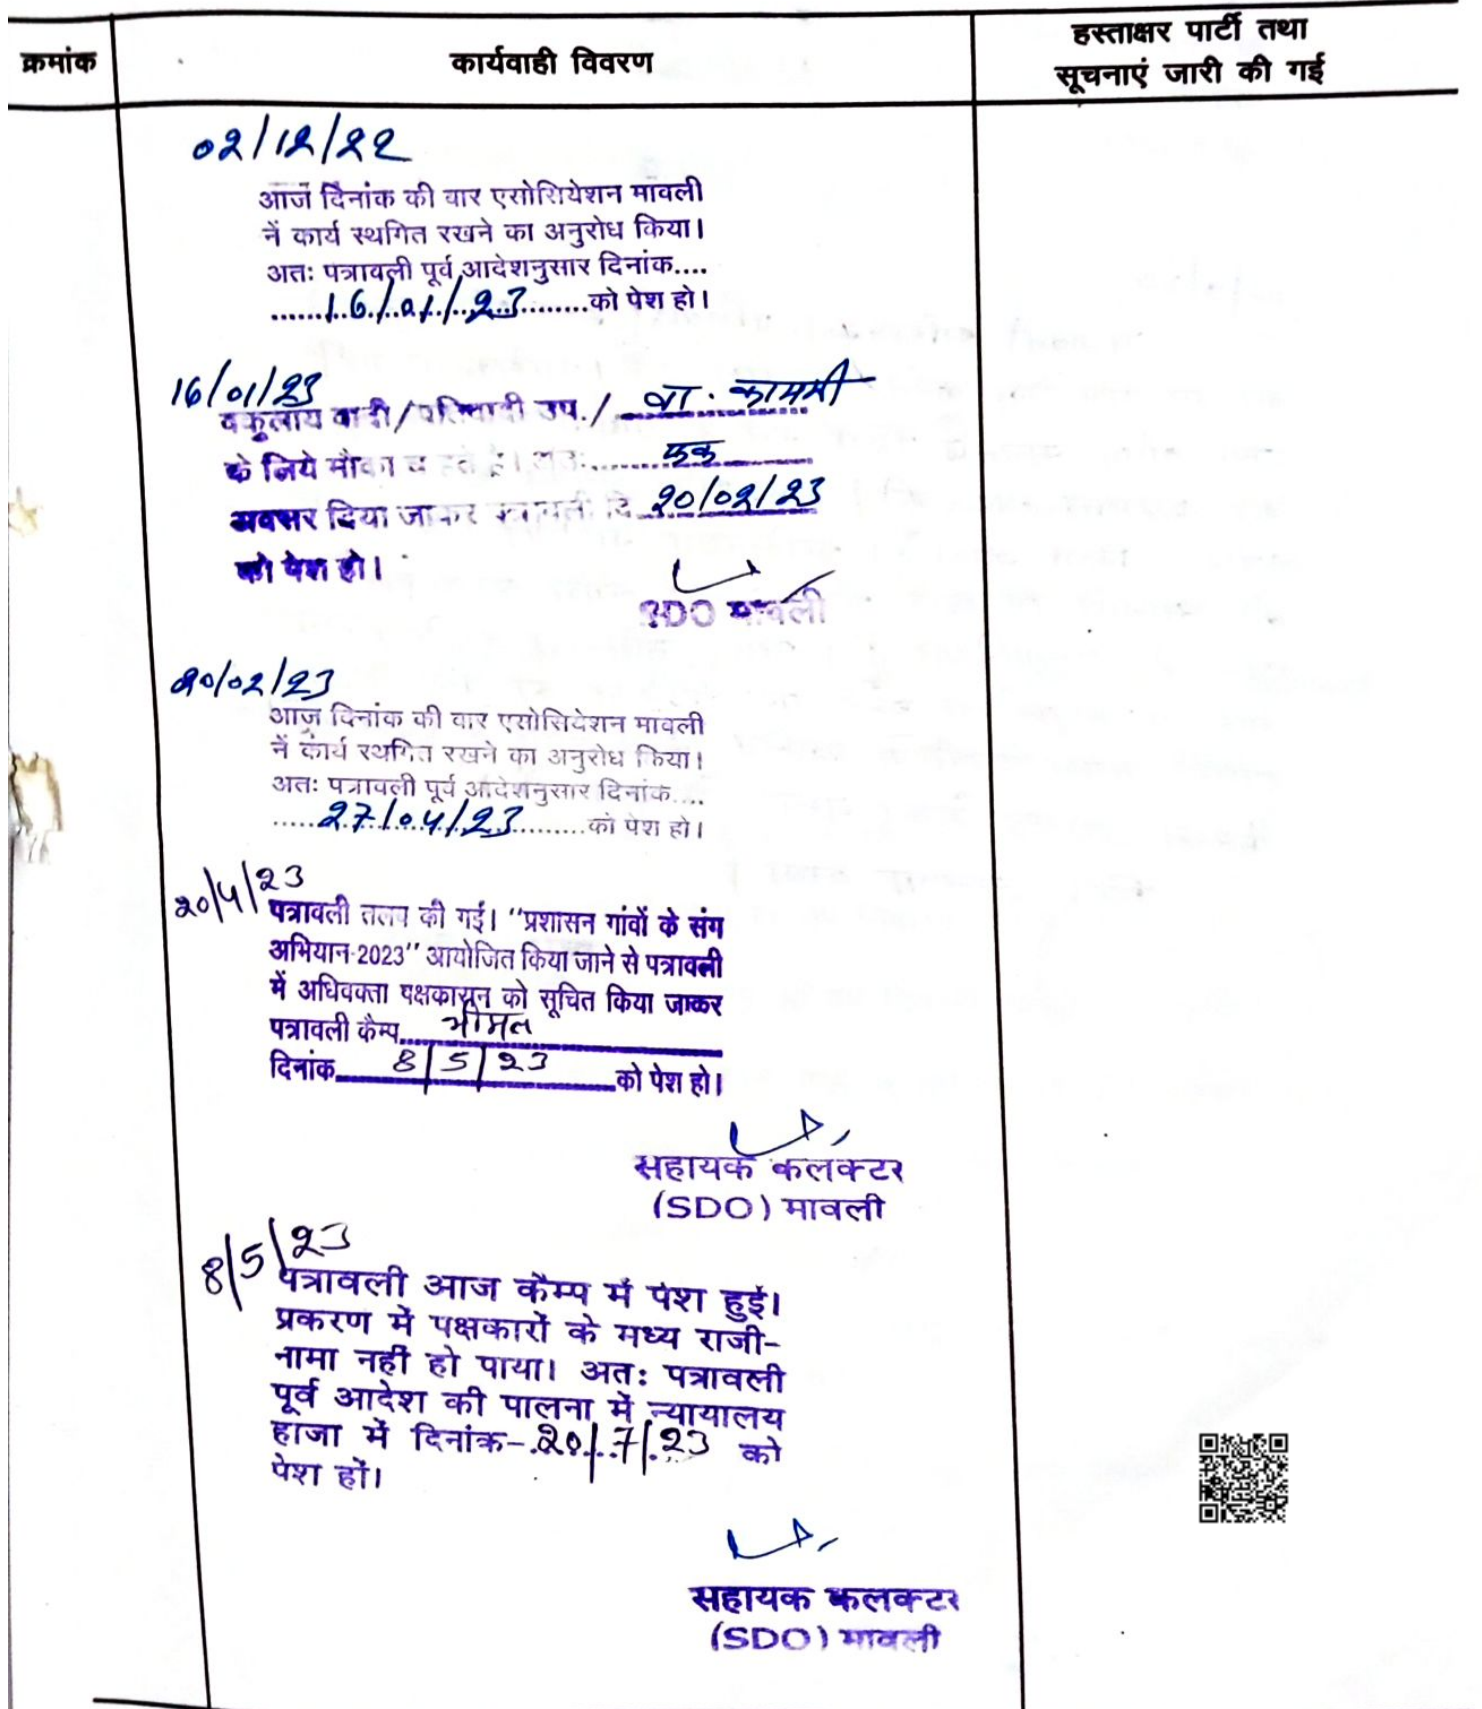 क्रमांक
कार्यवाही विवरण
हस्ताक्षर पार्टी तथा
सूचनाएं जारी की गई
02/12/22
आज दिनांक की वार एसोशियेशन मावली
नें कार्य स्थगित रखने का अनुरोध किया।
अतः पत्रावली पूर्व आदेशनुसार दिनांक....
......16/01/23........को पेश हो।
16/01/23
वकुलाय वादी/प्रतिवादी उप./ वा.
के लिये मौका च अतः...... एक
अवसर दिया जाकर पत्रावली दि. 20/02/23
को पेश हो।
SDO मावली
20/02/23
आज दिनांक की वार एसोसियेशन मावली
नें कार्य स्थगित रखने का अनुरोध किया।
अतः पत्रावली पूर्व आदेशनुसार दिनांक....
......27/04/23.........को पेश हो।
20/4/23
पत्रावली तलब की गई। "प्रशासन गांवों के संग
अभियान-2023" आयोजित किया जाने से पत्रावली
में अधिवक्ता पक्षकारान को सूचित किया जाकर
पत्रावली कैम्प....
दिनांक 8/5/23 को पेश हो।
सहायक कलक्टर
(SDO) मावली
8/5/23
पत्रावली आज कैम्प में पेश हुई।
प्रकरण में पक्षकारों के मध्य राजी-
नामा नहीं हो पाया। अतः पत्रावली
पूर्व आदेश की पालना में न्यायालय
हाजा में दिनांक-.20/7/23 को
पेश हों।
सहायक कलक्टर
(SDO) मावली